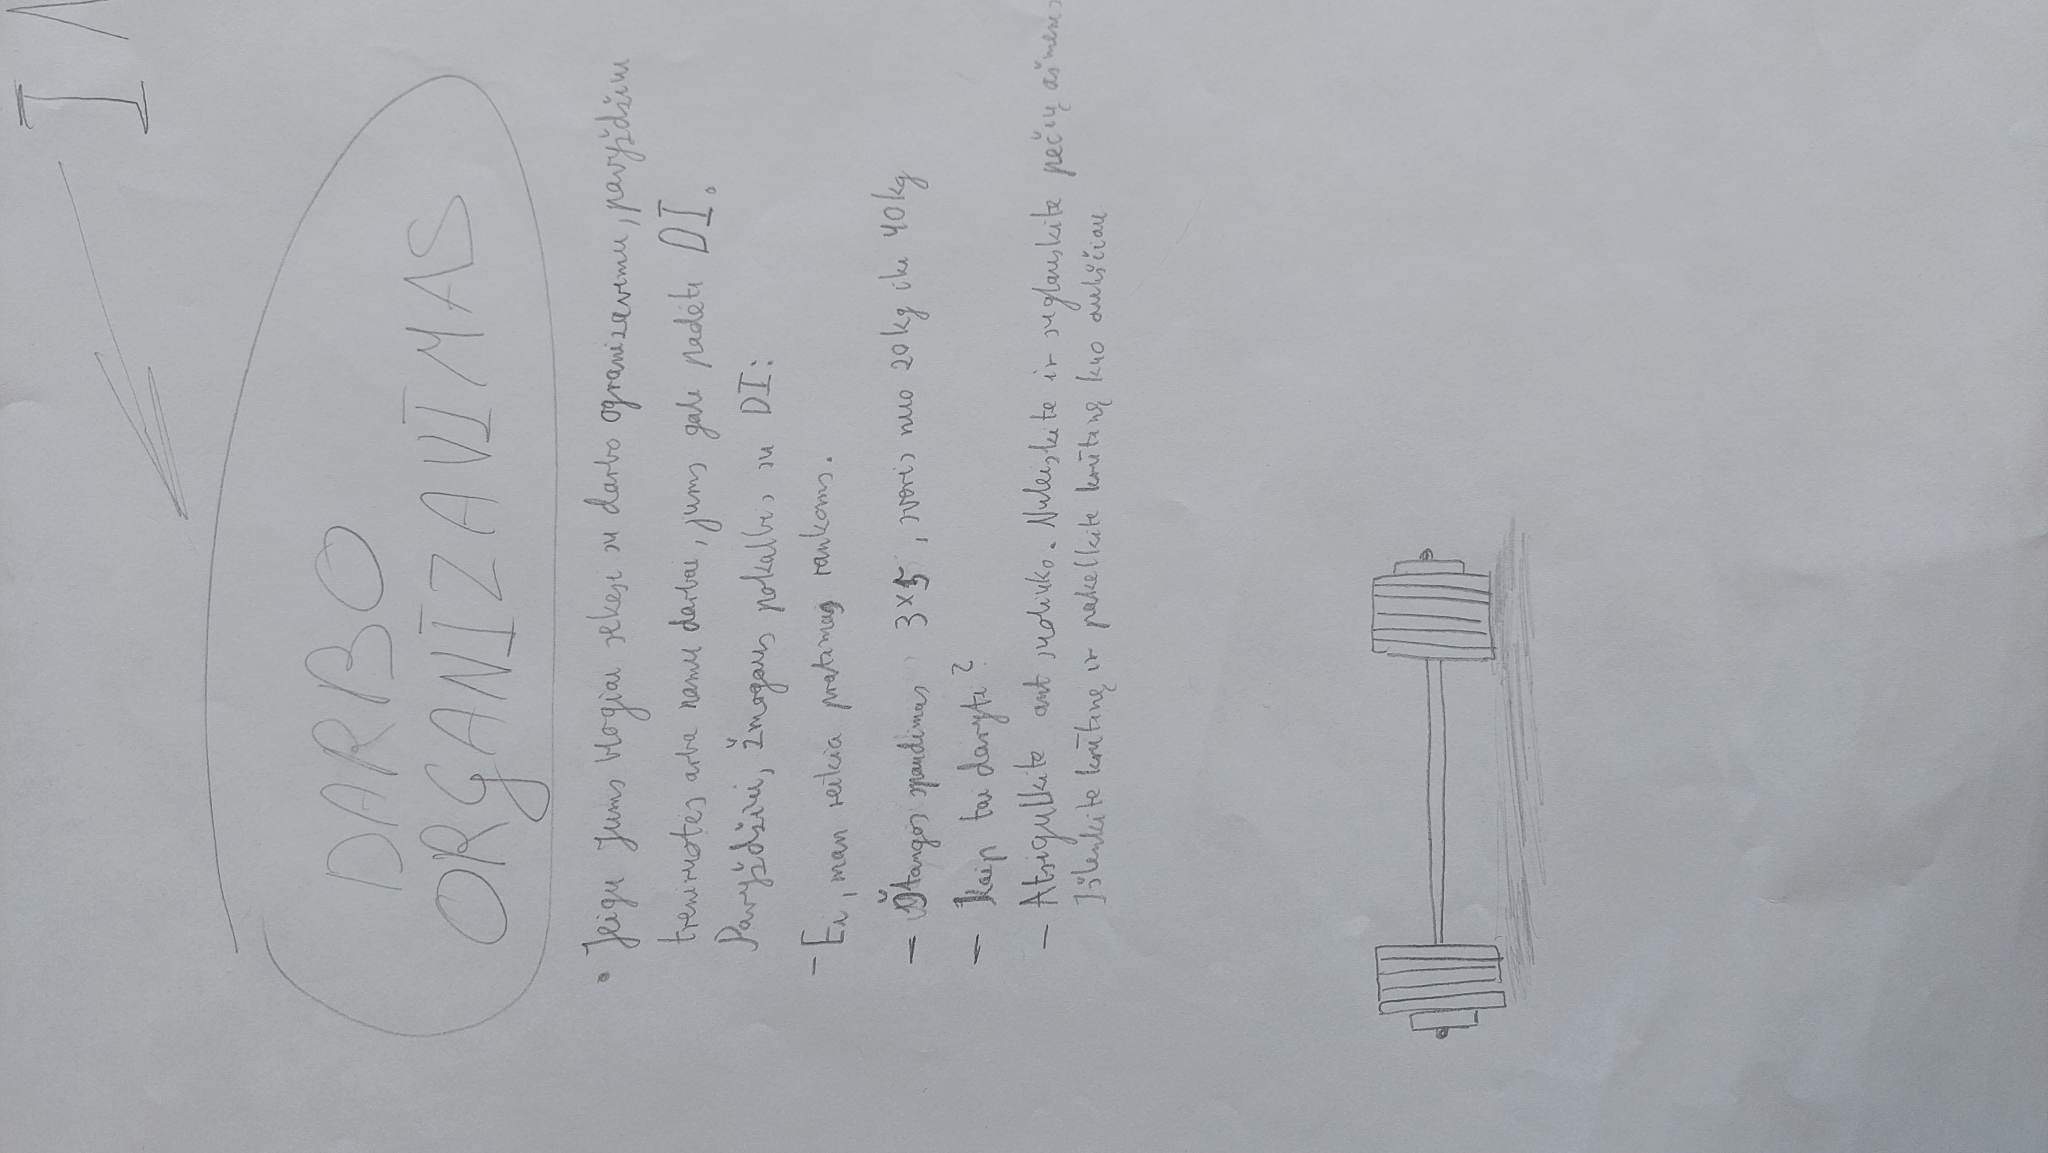 DARBO
ORGANIZAVIMAS
• Jeigu Jums blogiau sekesi su darbo ogranizavimu, pavyždžiui
treniruotės arba namu darbai, jums gali padėti DI.
Pavyždžiui, žmogaus pokalbis su DI:
- Ei, man reikia pratimas rankoms.
- Štangos spaudimas 3x5, svoris nuo 20kg iki 40kg
- Kaip tai daryti?
- Atsigulkite ant suoliuko. Nuleiskite ir suglauskite pečių ašmenis
Išlenkite krūtinę ir pakelkite krūtinę kuo aukščiau